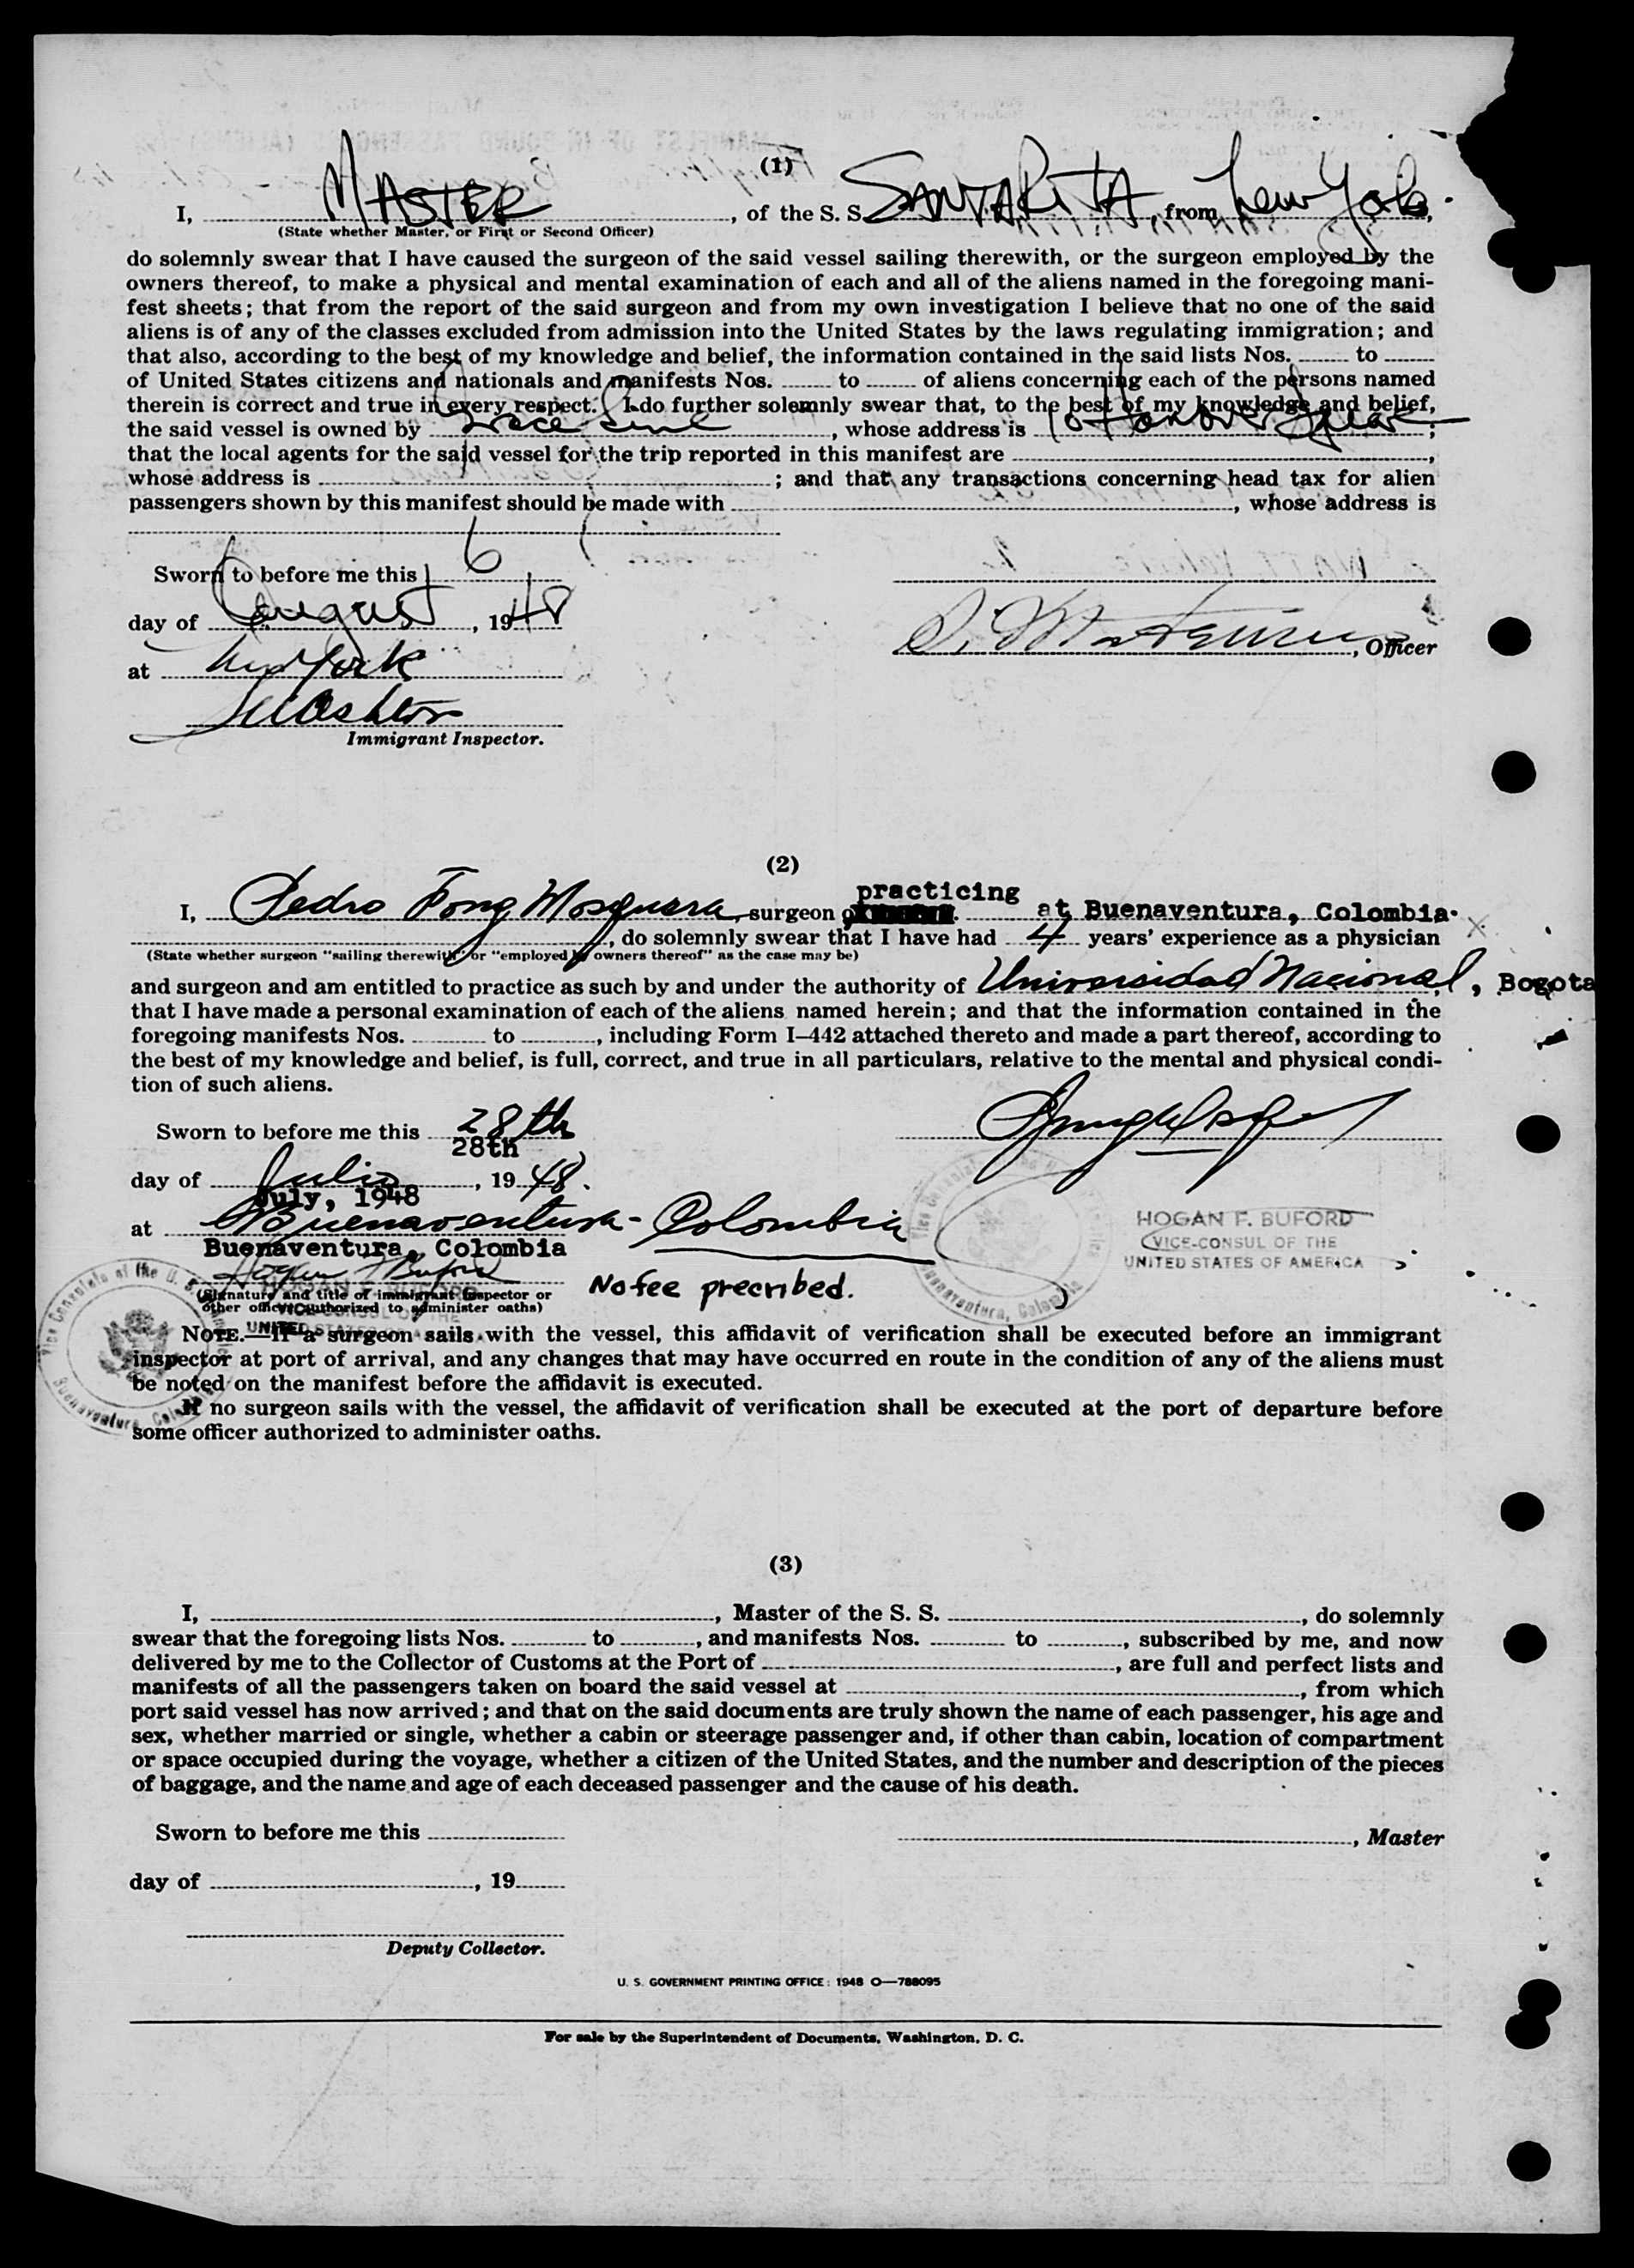 (1)
I, MASTER, of the S. S. SANTA RITA, from New York,
(State whether Master, or First or Second Officer)
do solemnly swear that I have caused the surgeon of the said vessel sailing therewith, or the surgeon employed by the
owners thereof, to make a physical and mental examination of each and all of the aliens named in the foregoing mani-
fest sheets; that from the report of the said surgeon and from my own investigation I believe that no one of the said
aliens is of any of the classes excluded from admission into the United States by the laws regulating immigration; and
that also, according to the best of my knowledge and belief, the information contained in the said lists Nos. to
of United States citizens and nationals and manifests Nos. to of aliens concerning each of the persons named
therein is correct and true in every respect. I do further solemnly swear that, to the best of my knowledge and belief,
the said vessel is owned by Grace Line, whose address is 10 Hanover Square;
that the local agents for the said vessel for the trip reported in this manifest are ,
whose address is ; and that any transactions concerning head tax for alien
passengers shown by this manifest should be made with , whose address is
Sworn to before me this 6
day of August, 1948
, Officer
at New York
Immigrant Inspector.
(2)
practicing
I, Pedro Fong Mosquera, surgeon at Buenaventura, Colombia.
, do solemnly swear that I have had 4 years' experience as a physician
(State whether surgeon "sailing therewith" or "employed by owners thereof" as the case may be)
and surgeon and am entitled to practice as such by and under the authority of Universidad Nacional, Bogota
that I have made a personal examination of each of the aliens named herein; and that the information contained in the
foregoing manifests Nos. to , including Form I-442 attached thereto and made a part thereof, according to
the best of my knowledge and belief, is full, correct, and true in all particulars, relative to the mental and physical condi-
tion of such aliens.
Sworn to before me this 28th
28th
day of Julio, 1948.
July, 1948
at Buenaventura - Colombia
HOGAN F. BUFORD
VICE-CONSUL OF THE
UNITED STATES OF AMERICA
Buenaventura, Colombia
Hogan F Buford
No fee precribed.
(Signature and title of immigrant inspector or
other officer authorized to administer oaths)
NOTE.—If a surgeon sails with the vessel, this affidavit of verification shall be executed before an immigrant
inspector at port of arrival, and any changes that may have occurred en route in the condition of any of the aliens must
be noted on the manifest before the affidavit is executed.
If no surgeon sails with the vessel, the affidavit of verification shall be executed at the port of departure before
some officer authorized to administer oaths.
(3)
I, , Master of the S. S. , do solemnly
swear that the foregoing lists Nos. to , and manifests Nos. to , subscribed by me, and now
delivered by me to the Collector of Customs at the Port of , are full and perfect lists and
manifests of all the passengers taken on board the said vessel at , from which
port said vessel has now arrived; and that on the said documents are truly shown the name of each passenger, his age and
sex, whether married or single, whether a cabin or steerage passenger and, if other than cabin, location of compartment
or space occupied during the voyage, whether a citizen of the United States, and the number and description of the pieces
of baggage, and the name and age of each deceased passenger and the cause of his death.
Sworn to before me this
, Master
day of , 19
Deputy Collector.
U. S. GOVERNMENT PRINTING OFFICE: 1948 O—788095
For sale by the Superintendent of Documents, Washington, D. C.